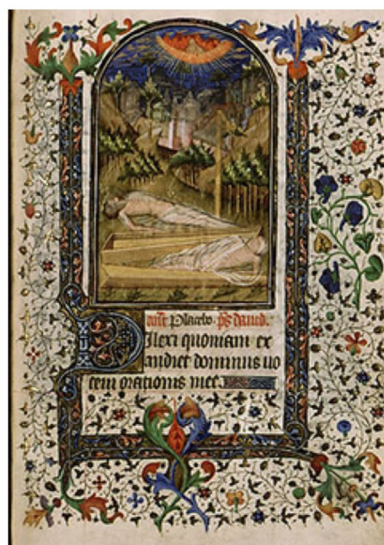 ant. Placebo. ps dauid.
Dilexi quoniam ex
audiet dominus uo
cem orationis mee.